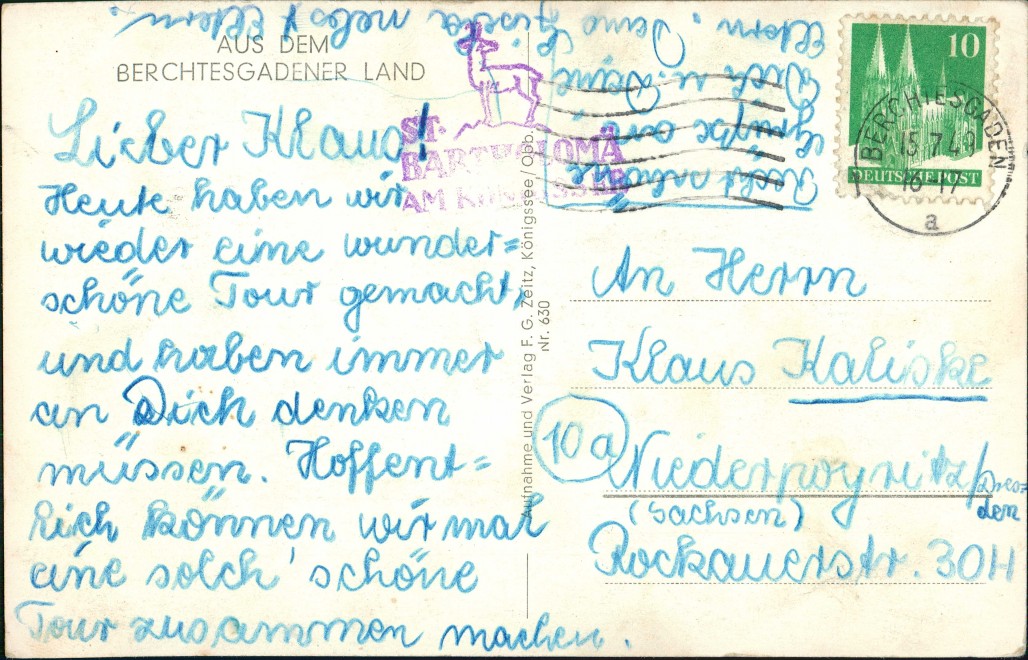 AUS DEM
BERCHTESGADENER LAND
Lieber Klaus!
Heute haben wir
wieder eine wunder=
schöne Tour gemacht,
und haben immer
an Dich denken
müssen. Hoffent=
lich können wir mal
eine solch' schöne
Tour zusammen machen.
Recht schöne
Grüße an
Dich u. Deine
Eltern. Deine Gisela nebst Eltern.
ST.
BARTHOLOMÄ
AM KÖNIGSSEE
Aufnahme und Verlag F. G. Zeitz, Königssee/Obb.
Nr. 630
10
DEUTSCHE POST
BERCHTESGADEN
15.7.49
16-17
a
An Herrn
Klaus Kaliske
10a
Niederpoyritz/Dres=
den
(Sachsen)
Rockauerstr. 30H